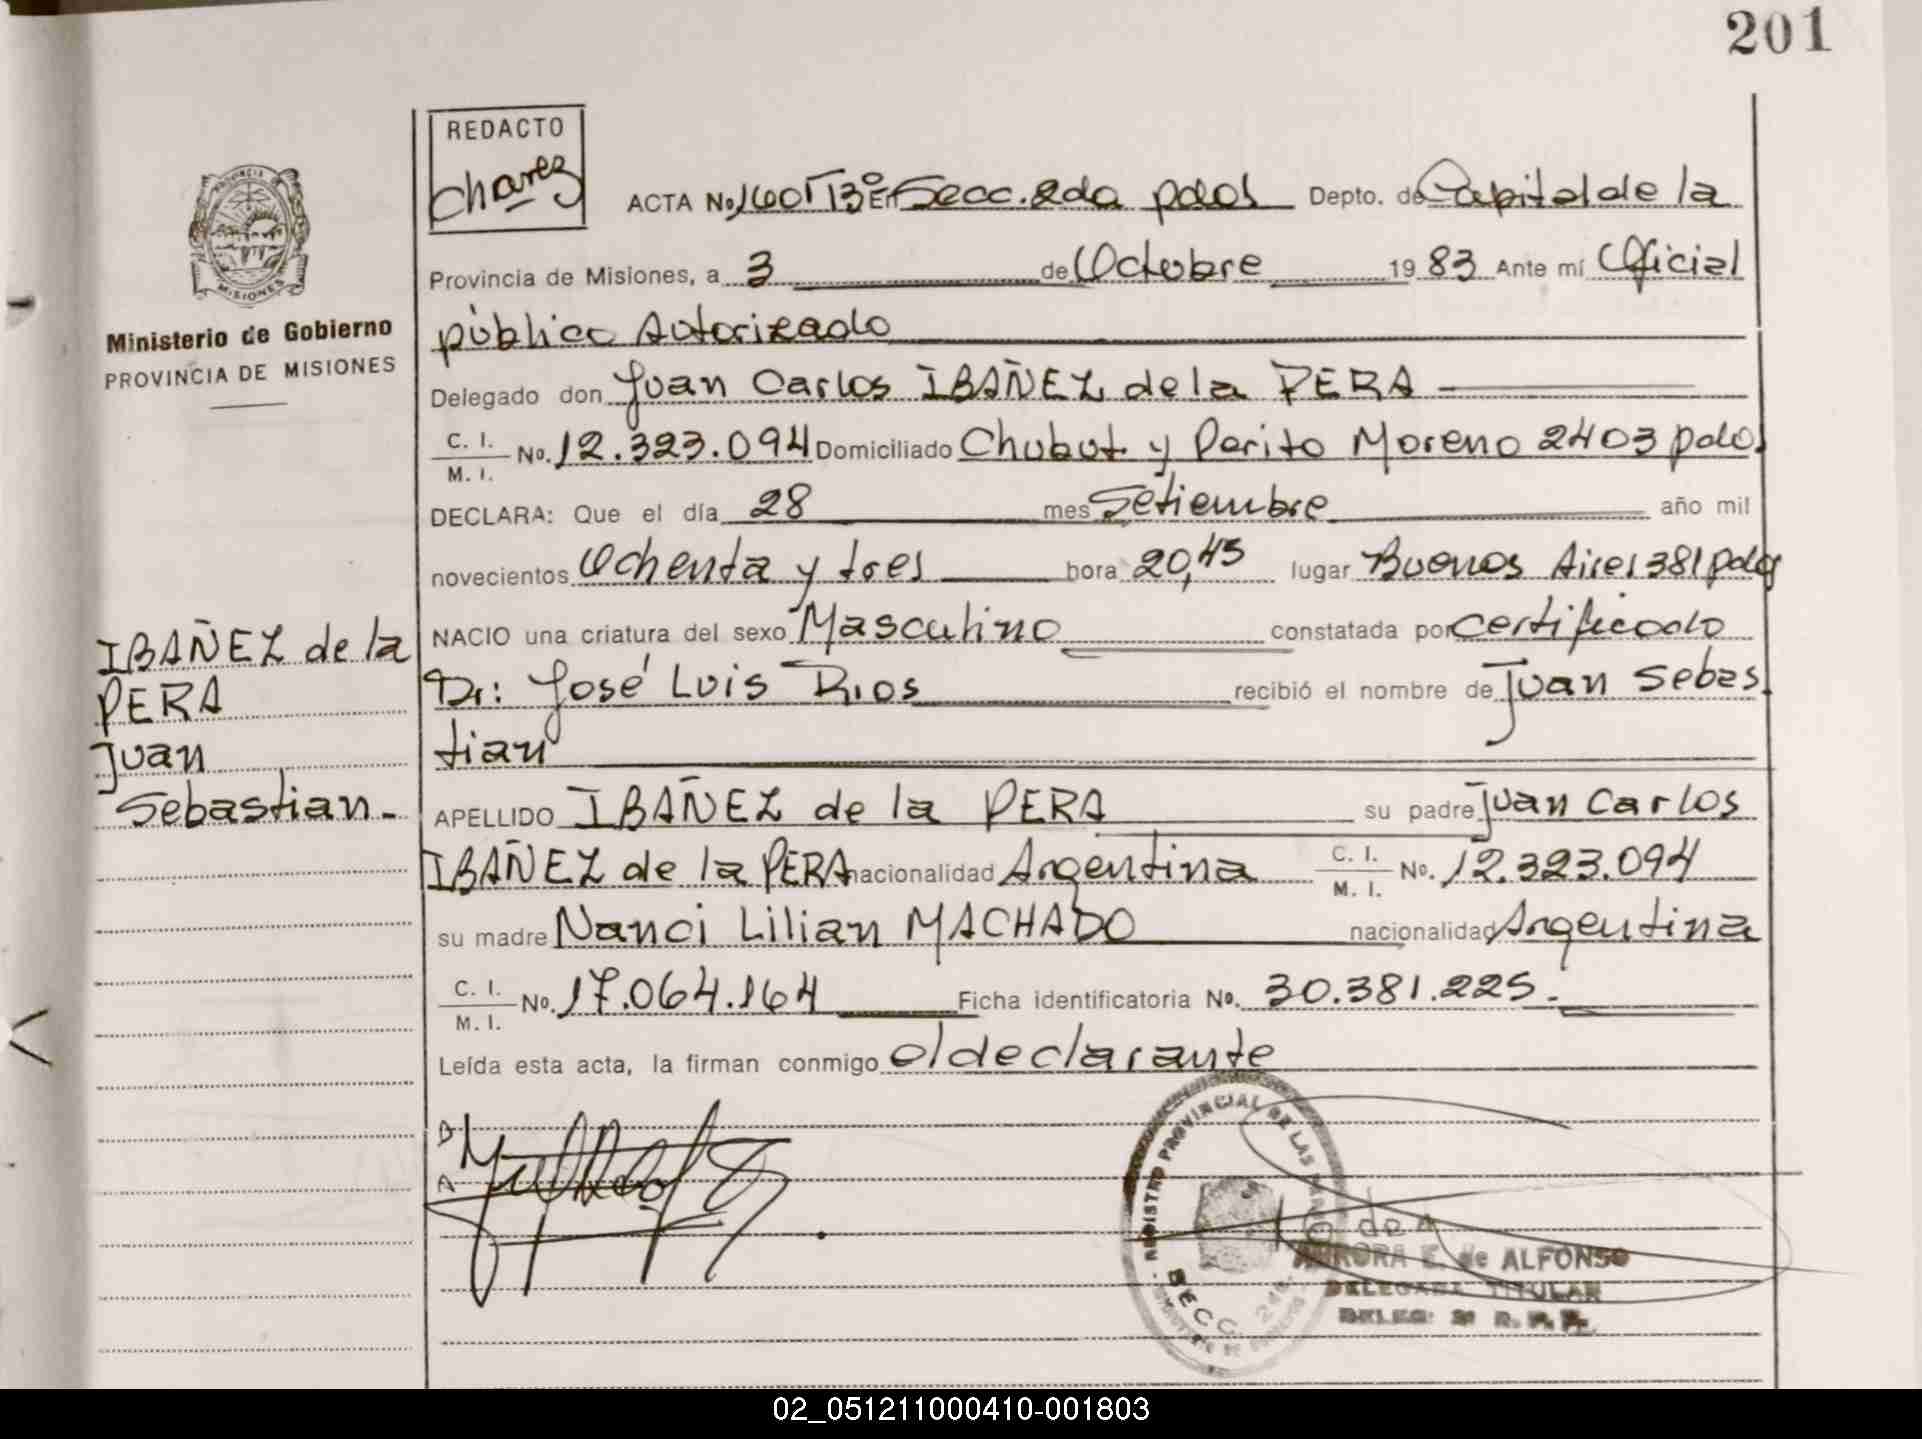 201
REDACTO
Chavez
ACTA No. 160 T 13º En Secc. 2da pdas Depto. de Capital de la
Provincia de Misiones, a 3 de Octubre 19 83 Ante mí Oficial
público Autorizado
Delegado don Juan Carlos IBAÑEZ de la PERA
C. I.
M. I. No. 12.323.094 Domiciliado Chubut y Perito Moreno 2403 pdas
DECLARA: Que el día 28 mes Setiembre año mil
novecientos Ochenta y tres hora 20,45 lugar Buenos Aires 381 pdas
NACIO una criatura del sexo Masculino constatada por certificado
Dr: José Luis Rios recibió el nombre de Juan Sebas
tian
APELLIDO IBAÑEZ de la PERA su padre Juan Carlos
IBAÑEZ de la PERA nacionalidad Argentina C. I.
M. I. No. 12.323.094
su madre Nanci Lilian MACHADO nacionalidad Argentina
C. I.
M. I. No. 17.064.164 Ficha identificatoria No. 30.381.225.-
Leída esta acta, la firman conmigo el declarante
PROVINCIA DE
MISIONES
Ministerio de Gobierno
PROVINCIA DE MISIONES
IBAÑEZ de la
PERA
Juan
Sebastian.-
REGISTRO PROVINCIAL DE LAS
SECC. 2da
AURORA E. de ALFONSO
DELEGADA TITULAR
02_051211000410-001803